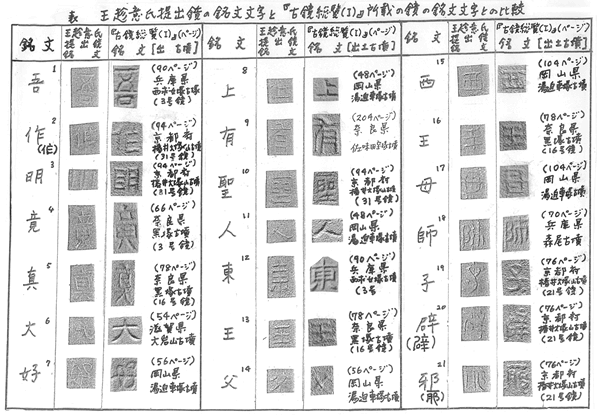 表 王趁意氏提出鏡の銘文文字と『古鏡総覧(I)』所載の鏡の銘文文字との比較
銘文 王趁意氏提出鏡 『古鏡総覧(I)』(ページ) 銘文 [出土古墳]
銘文 王趁意氏提出鏡 『古鏡総覧(I)』(ページ) 銘文 [出土古墳]
銘文 王趁意氏提出鏡 『古鏡総覧(I)』(ページ) 銘文 [出土古墳]
吾 1 (90ページ) 兵庫県 西求女塚古墳 (3号鏡)
作(佐) 2 (94ページ) 京都府 椿井大塚山古墳 (31号鏡)
明 3 (94ページ) 京都府 椿井大塚山古墳 (31号鏡)
竟 4 (66ページ) 奈良県 黒塚古墳 (3号鏡)
真 5 (78ページ) 奈良県 黒塚古墳 (16号鏡)
大 6 (54ページ) 滋賀県 大岩山古墳
好 7 (56ページ) 岡山県 湯迫車塚古墳
上 8 (48ページ) 岡山県 湯迫車塚古墳
有 9 (204ページ) 奈良県 佐味田宝塚古墳
聖 10 (94ページ) 京都府 椿井大塚山古墳 (31号鏡)
人 11 (48ページ) 岡山県 湯迫車塚古墳
東 12 (90ページ) 兵庫県 西求女塚古墳 (3号
王 13 (78ページ) 奈良県 黒塚古墳 (16号鏡)
父 14 (56ページ) 岡山県 湯迫車塚古墳
西 15 (104ページ) 岡山県 湯迫車塚古墳
王 16 (78ページ) 奈良県 黒塚古墳 (16号鏡)
母 17 (104ページ) 岡山県 湯迫車塚古墳
師 18 (70ページ) 兵庫県 森尾古墳
子 19 (76ページ) 京都府 椿井大塚山古墳 (21号鏡)
辟 20 (76ページ) 京都府 椿井大塚山古墳 (21号鏡)
邪 21 (76ページ) 京都府 椿井大塚山古墳 (21号鏡)